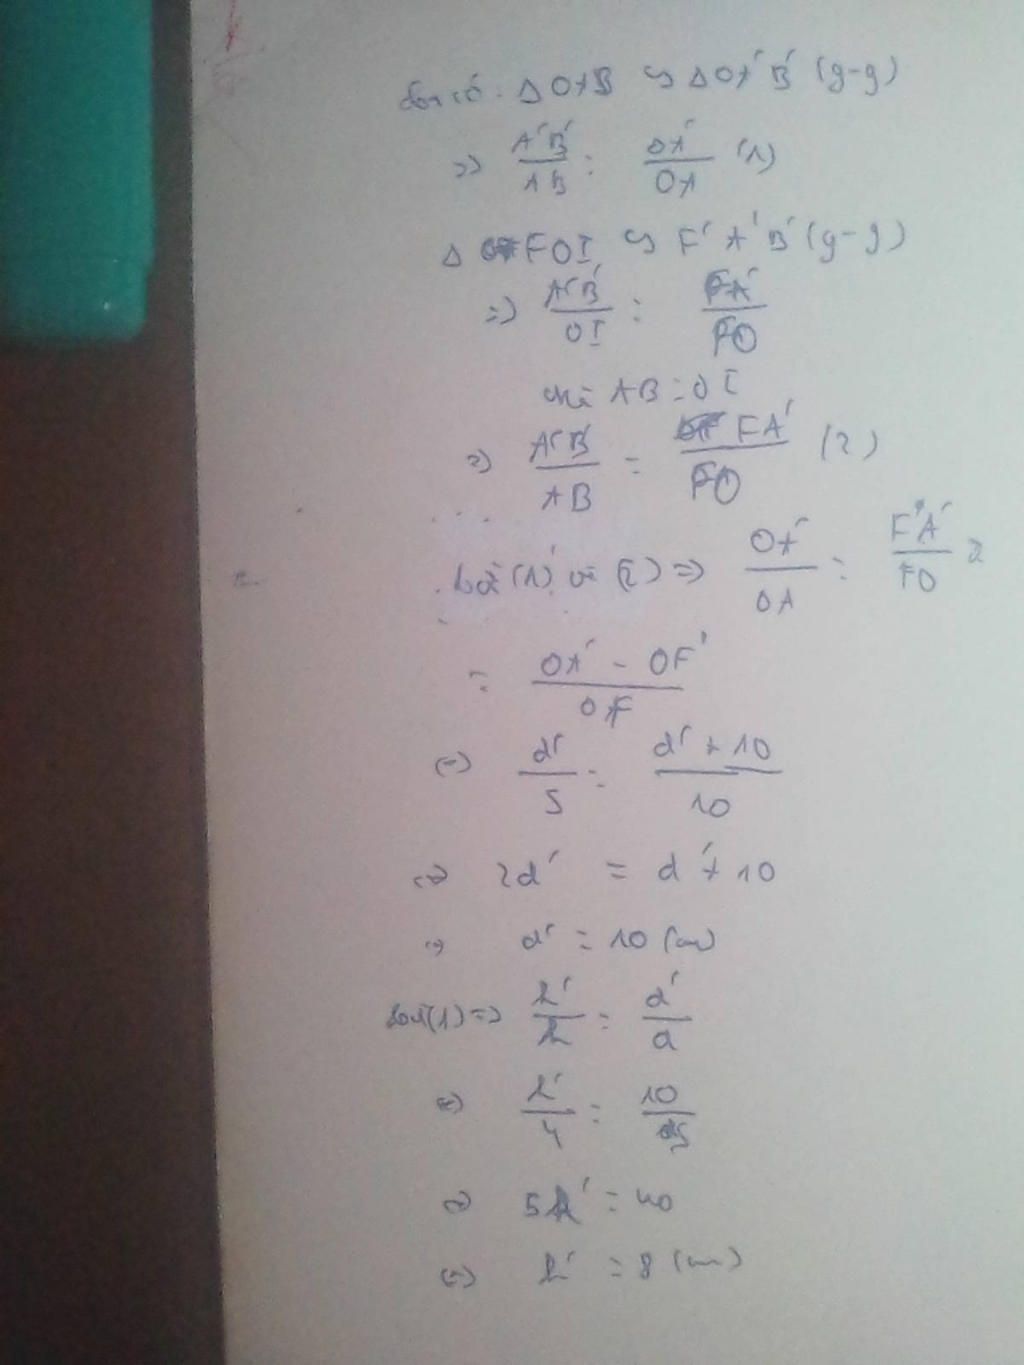 Ta có: Δ OAB ∽ Δ OA'B' (g-g)
=> A'B'/AB = OA'/OA (1)
Δ FOI ∽ F'A'B' (g-g)
=> A'B'/OI = FA'/FO
mà AB = OI
=> A'B'/AB = FA'/FO (2)
Từ (1) và (2) => OA'/OA = F'A'/FO
= OA' - OF'/OF
<=> d'/5 = d' + 10/10
<=> 2d' = d' + 10
<=> d' = 10 (cm)
Từ (1) => h'/h = d'/d
<=> h'/4 = 10/5
<=> 5h' = 40
<=> h' = 8 (cm)